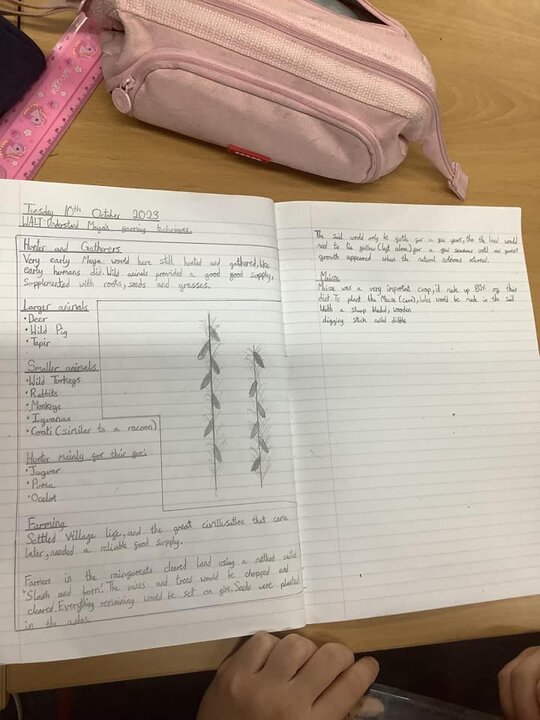 Tuesday 10th October 2023
WALT: Understand Maya's farming techniques.
Hunter and Gatherers
Very early Maya would have still hunted and gathered, like
early humans did. Wild animals provided a good food supply,
Supplemented with roots, seeds and grasses.
Larger animals
• Deer
• Wild Pig
• Tapir
Smaller animals
• Wild Turkeys
• Rabbits
• Monkeys
• Iguanas
• Coati (similar to a racoon)
Hunter mainly for their fur:
• Jaguar
• Puma
• Ocelot
Farming
Settled Village life, and the great civilisation that came
later, needed a reliable food supply.
Farmers in the rainforests cleared land using a method called
"Slash and burn." The vines and trees would be chopped and
cleared. Everything remaining would be set on fire. Seeds were planted
in the ashes.
The soil would only be fertile for a few years, then the land would
need to lie fallow (left alone) for a few seasons until new forest
growth appeared when the natural nutrients returned.
Maize
Maize was a very important crop, it made up 80% of their
diet. To plant the Maize (corn), holes would be made in the soil
With a sharp bladed, wooden
digging stick called dibble